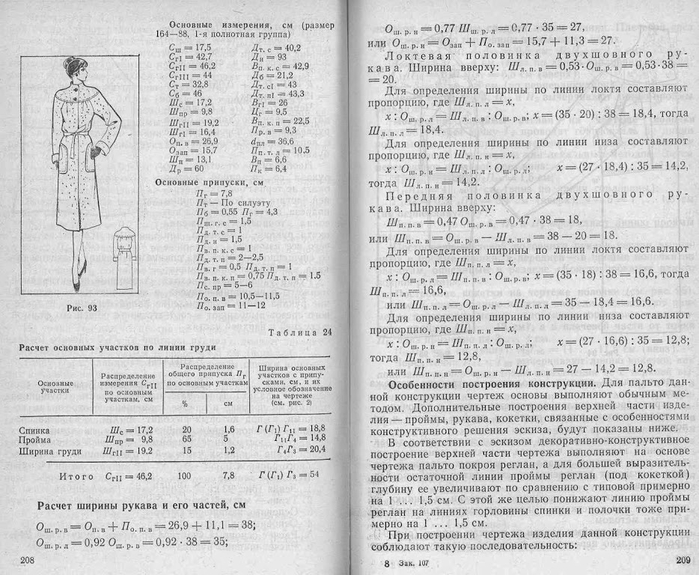 Основные измерения, см (размер
164—88, 1-я полнотная группа)
Сш = 17,5
СгI = 42,7
СгII = 46,2
СгIII = 44
Ст = 32,8
Сб = 46
Шс = 17,2
Шпр = 9,8
ШгII = 19,2
ШгI = 16,4
Оп. в = 26,9
Озап = 15,7
Шп = 13,1
Др = 60
Дт. с = 40,2
Ди = 93
Вп. к. с = 42,9
Дб = 21,2
Дт. сI = 43
Дт. пI = 43,3
ВгI = 26
Цг = 9,5
Вп. к. п = 22,5
Пр. в = 9,3
dпл = 36,6
Пп. т. л = 10,5
Вп = 6,6
Пк = 6,4
Основные припуски, см
Пг = 7,8
Пт — По силуэту
Пб = 0,55 Пг = 4,3
Пш. г. с = 1,5
Пд. т. с = 1
Пд. и = 1,5
Пв. п. к. с = 1
Пд. т. п = 2—2,5
Пв. г = 0,5 Пд. т. п = 1
Пв. п. к. п = 0,75 Пд. т. п = 1,5
Пс. пр = 5—6
По. п. в = 10,5—11,5
По. зап = 11—12
Рис. 93
Таблица 24
Расчет основных участков по линии груди
Основные участки
Распределение измерения СгII по основным участкам, см
Распределение общего припуска Пг по основным участкам
%
см
Ширина основных участков с припусками, см, и их условное обозначение на чертеже (см. рис. 2)
Спинка Шс = 17,2 20 1,6 Г (Г1) Г11 = 18,8
Пройма Шпр = 9,8 65 5 Г11Г4 = 14,8
Ширина груди ШгII = 19,2 15 1,2 Г4Г3 = 20,4
Итого СгII = 46,2 100 7,8 Г (Г1) Г3 = 54
Расчет ширины рукава и его частей, см
Ош. р. в = Оп. в + По. п. в = 26,9 + 11,1 = 38;
Ош. р. л = 0,92 Ош. р. в = 0,92 · 38 = 35;
208
Ош. р. н = 0,77 Шш. р. л = 0,77 · 35 = 27,
или Ош. р. н = Озап + По. зап = 15,7 + 11,3 = 27.
Локтевая половинка двухшовного ру-
кава. Ширина вверху: Шл. п. в = 0,53 · Ош. р. в = 0,53 · 38 =
= 20.
Для определения ширины по линии локтя составляют
пропорцию, где Шл. п. л = x,
x : Ош. р. л = Шл. п. в : Ош. р. в; x = (35 · 20) : 38 = 18,4, тогда
Шл. п. л = 18,4.
Для определения ширины по линии низа составляют
пропорцию, где Шл. п. н = x,
x : Ош. р. н = Шл. п. л : Ош. р. л; x = (27 · 18,4) : 35 = 14,2,
тогда Шл. п. н = 14,2.
Передняя половинка двухшовного ру-
кава. Ширина вверху:
Шп. п. в = 0,47 Ош. р. в = 0,47 · 38 = 18,
или Шп. п. в = Ош. р. в — Шл. п. в = 38 — 20 = 18.
Для определения ширины по линии локтя составляют
пропорцию, где Шп. п. л = x,
x : Ош. р. л = Шп. п. в : Ош. р. в; x = (35 · 18) : 38 = 16,6, тогда
Шп. п. л = 16,6,
или Шп. п. л = Ош. р. л — Шл. п. л = 35 — 18,4 = 16,6.
Для определения ширины по линии низа составляют
пропорцию, где Шп. п. н = x,
x : Ош. р. н = Шп. п. л : Ош. р. л; x = (27 · 16,6) : 35 = 12,8;
тогда Шп. п. н = 12,8,
или Шп. п. н = Ош. р. н — Шл. п. н = 27 — 14,2 = 12,8.
Особенности построения конструкции. Для пальто дан-
ной конструкции чертеж основы выполняют обычным ме-
тодом. Дополнительные построения верхней части изде-
лия — проймы, рукава, кокетки, связанные с особенностями
конструктивного решения эскиза, будут показаны ниже.
В соответствии с эскизом декоративно-конструктивное
построение верхней части чертежа выполняют на основе
чертежа пальто покроя реглан, а для большей выразитель-
ности остаточной линии проймы реглан (под кокеткой)
глубину ее увеличивают по сравнению с типовой примерно
на 1 ... 1,5 см. С этой же целью понижают линию проймы
реглан на линиях горловины спинки и полочки тоже при-
мерно на 1 ... 1,5 см.
При построении чертежа изделия данной конструкции
соблюдают такую последовательность:
8 Зак. 107
209